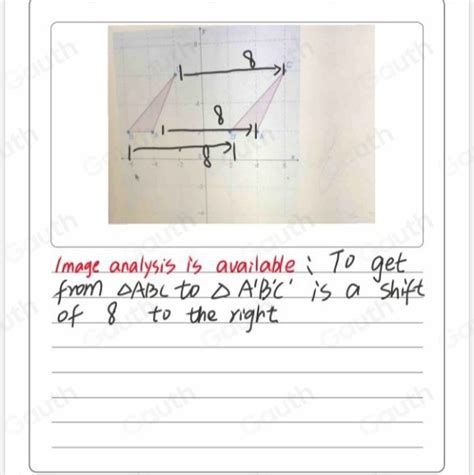 8
8
8
Image analysis is available : To get
from △ABC to △A'B'C' is a shift
of 8 to the right